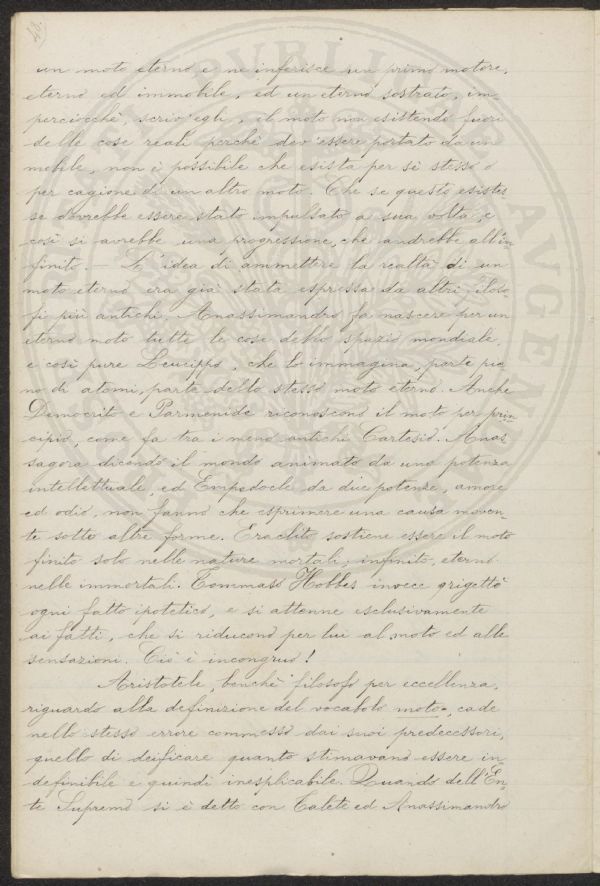 40.
un moto eterno e ne inferisce un primo motore,
eterno ed immobile, ed un eterno sostrato, im-
perciocchè, scriv'egli, il moto non esistendo fuori
delle cose reali perchè dev'essere portato da un
mobile, non è possibile che esista per sè stesso o
per cagione di un altro moto. Chè se questo esistes
se dovrebbe essere stato impulsato a sua volta, e
così si avrebbe una progressione, che andrebbe all'in
finito. — L'idea di ammettere la realtà di un
moto eterno era già stata espressa da altri filoso-
fi più antichi. Anassimandro fa nascere per un
eterno moto tutte le cose dello spazio mondiale,
e così pure Leucippo, che lo immagina, parte pie-
no di atomi, parte dello stesso moto eterno. Anche
Democrito e Parmenide riconoscono il moto per prin-
cipio, come fa tra i meno antichi Cartesio. Anas
sagora dicendo il mondo animato da una potenza
intellettuale, ed Empedocle da due potenze, amore
ed odio, non fanno che esprimere una causa moven-
te sotto altre forme. Eraclito sostiene essere il moto
finito solo nelle nature mortali; infinito, eterno
nelle immortali. Tommaso Hobbes invece grigettò
ogni fatto ipotetico, e si attenne esclusivamente
ai fatti, che si riducono per lui al moto ed alle
sensazioni. Ciò è incongruo!
Aristotele, benchè filosofo per eccellenza,
riguardo alla definizione del vocabolo moto, cade
nello stesso errore commesso dai suoi predecessori,
quello di deificare quanto stimavano essere in-
definibile e quindi inesplicabile. Quando dell'En-
te Supremo si è detto con Talete ed Anassimandro